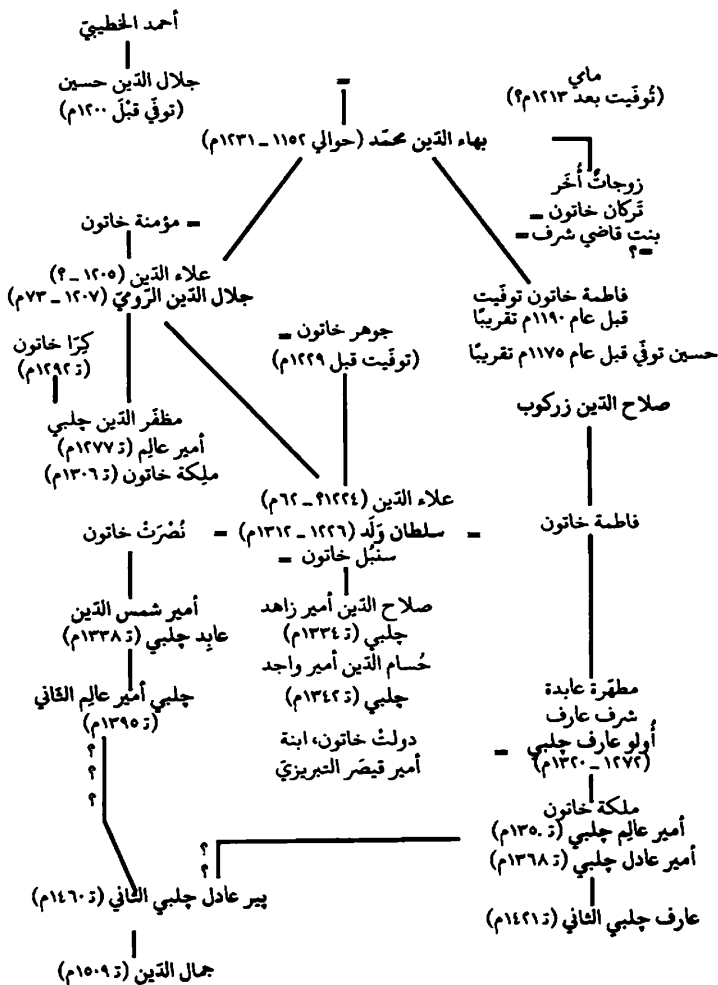 أحمد الخطيبيّ
جلال الدّين حسين
(توفّي قبْلَ ١٢٠٠م)
ماي
(تُوفّيت بعد ١٢١٣م؟)
بهاء الدّين محمّد (حوالي ١١٥٢ – ١٢٣١م)
زوجاتٌ أُخَر
تَركان خاتون =
بنت قاضي شرف =
= ؟
= مؤمنة خاتون
علاء الدّين (١٢٠٥ – ؟)
جلال الدّين الرّوميّ (١٢٠٧ – ٧٣م)
فاطمة خاتون توفّيت
قبل عام ١١٩٠م تقريبًا
حسين توفّي قبل عام ١١٧٥م تقريبًا
جوهر خاتون =
(توفّيت قبل ١٢٢٩م)
كِرّا خاتون
(تـ ١٢٩٢م)
مظفّر الدّين چلبي
أمير عالِم (تـ ١٢٧٧م)
ملِكة خاتون (تـ ١٣٠٦م)
صلاح الدّين زركوب
علاء الدّين (١٢٢٤؟ – ٦٢م)
= سلطان وَلَد (١٢٢٦ – ١٣١٢م) =
سنبُل خاتون =
نُصْرَتْ خاتون
فاطمة خاتون
أمير شمس الدّين
عابِد چلبي (تـ ١٣٣٨م)
صلاح الدّين أمير زاهد
چلبي (تـ ١٣٣٤م)
حُسام الدّين أمير واجد
چلبي (تـ ١٣٤٢م)
چلبي أمير عالِم الثّاني
(تـ ١٣٩٥م)
مطهّرة عابدة
شرف عارف
أُولو عارف چلبي =
(١٢٧٢ – ١٣٢٠م)
دولتْ خاتون، ابنة
أمير قيصَر التبريزيّ
؟
؟
؟
ملكة خاتون
أمير عالِم چلبي (تـ ١٣٥٠م)
أمير عادل چلبي (تـ ١٣٦٨م)
؟
؟
پير عادل چلبي الثّاني (تـ ١٤٦٠م)
عارف چلبي الثاني (تـ ١٤٢١م)
جمال الدّين (تـ ١٥٠٩م)